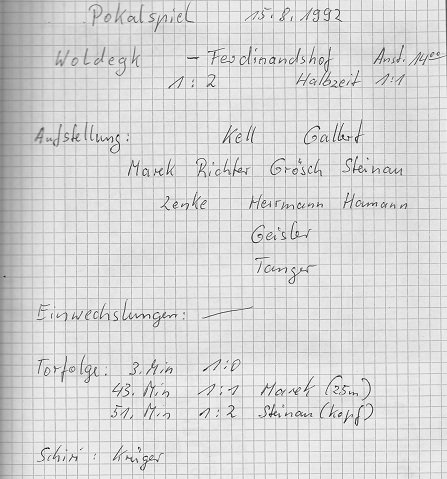 Pokalspiel 15.8.1992
Woldegk – Ferdinandshof Anst. 14⁰⁰
1 : 2 Halbzeit 1:1
Aufstellung: Kell Gallert
Marek Richter Grösch Steinau
Zenke Herrmann Hamann
Geisler
Tanger
Einwechslungen: —
Torfolge: 3. Min 1:0
43. Min 1:1 Marek (25m)
51. Min 1:2 Steinau (Kopf)
Schiri: Krüger